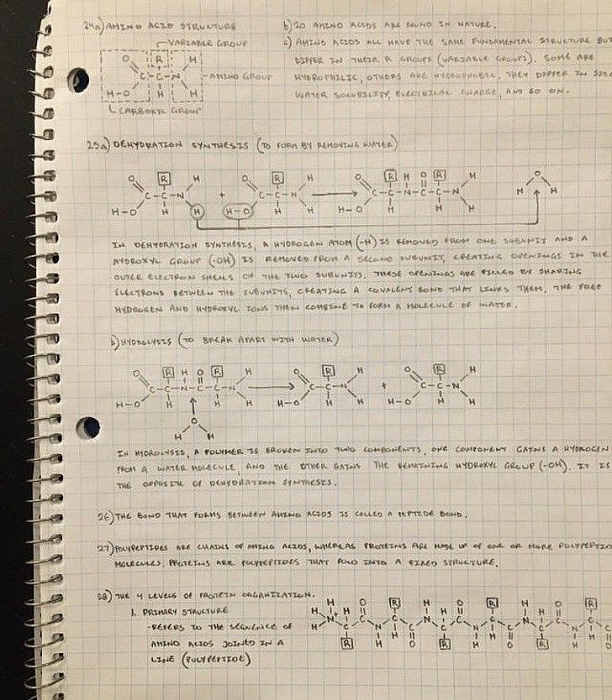 24a) AMINO ACID STRUCTURE
VARIABLE GROUP
O R H
C-C-N
AMINO GROUP
H-O H H
CARBOXYL GROUP
b) 20 AMINO ACIDS ARE FOUND IN NATURE.
c) AMINO ACIDS ALL HAVE THE SAME FUNDAMENTAL STRUCTURE BUT
DIFFER IN THEIR R GROUPS (VARIABLE GROUPS). SOME ARE
HYDROPHILIC, OTHERS ARE HYDROPHOBIC, THEY DIFFER IN SIZE
WATER SOLUBILITY, ELECTRICAL CHARGE, AND SO ON.
25a) DEHYDRATION SYNTHESIS (TO FORM BY REMOVING WATER)
O R H O R H O R H O R H O
C-C-N + C-C-N C-C-N-C-C-N H H
H-O H H H-O H H H-O H H H
IN DEHYDRATION SYNTHESIS, A HYDROGEN ATOM (-H) IS REMOVED FROM ONE SUBUNIT AND A
HYDROXYL GROUP (-OH) IS REMOVED FROM A SECOND SUBUNIT, CREATING OPENINGS IN THE
OUTER ELECTRON SHELLS OF THE TWO SUBUNITS. THESE OPENINGS ARE FILLED BY SHARING
ELECTRONS BETWEEN THE SUBUNITS, CREATING A COVALENT BOND THAT LINKS THEM. THE FREE
HYDROGEN AND HYDROXYL IONS THEN COMBINE TO FORM A MOLECULE OF WATER.
b) HYDROLYSIS (TO BREAK APART WITH WATER)
O R H O R H O R H O R H
C-C-N-C-C-N C-C-N + C-C-N
H-O H H H H-O H H H-O H H
O
H H
IN HYDROLYSIS, A POLYMER IS BROKEN INTO TWO COMPONENTS, ONE COMPONENT GAINS A HYDROGEN
FROM A WATER MOLECULE, AND THE OTHER GAINS THE REMAINING HYDROXYL GROUP (-OH). IT IS
THE OPPOSITE OF DEHYDRATION SYNTHESIS.
26) THE BOND THAT FORMS BETWEEN AMINO ACIDS IS CALLED A PEPTIDE BOND.
27) POLYPEPTIDES ARE CHAINS OF AMINO ACIDS, WHEREAS PROTEINS ARE MADE UP OF ONE OR MORE POLYPEPTIDE
MOLECULES, PROTEINS ARE POLYPEPTIDES THAT FOLD INTO A FIXED STRUCTURE.
28) THE 4 LEVELS OF PROTEIN ORGANIZATION.
1. PRIMARY STRUCTURE
-REFERS TO THE SEQUENCE OF
AMINO ACIDS JOINED IN A
LINE (POLYPEPTIDE)